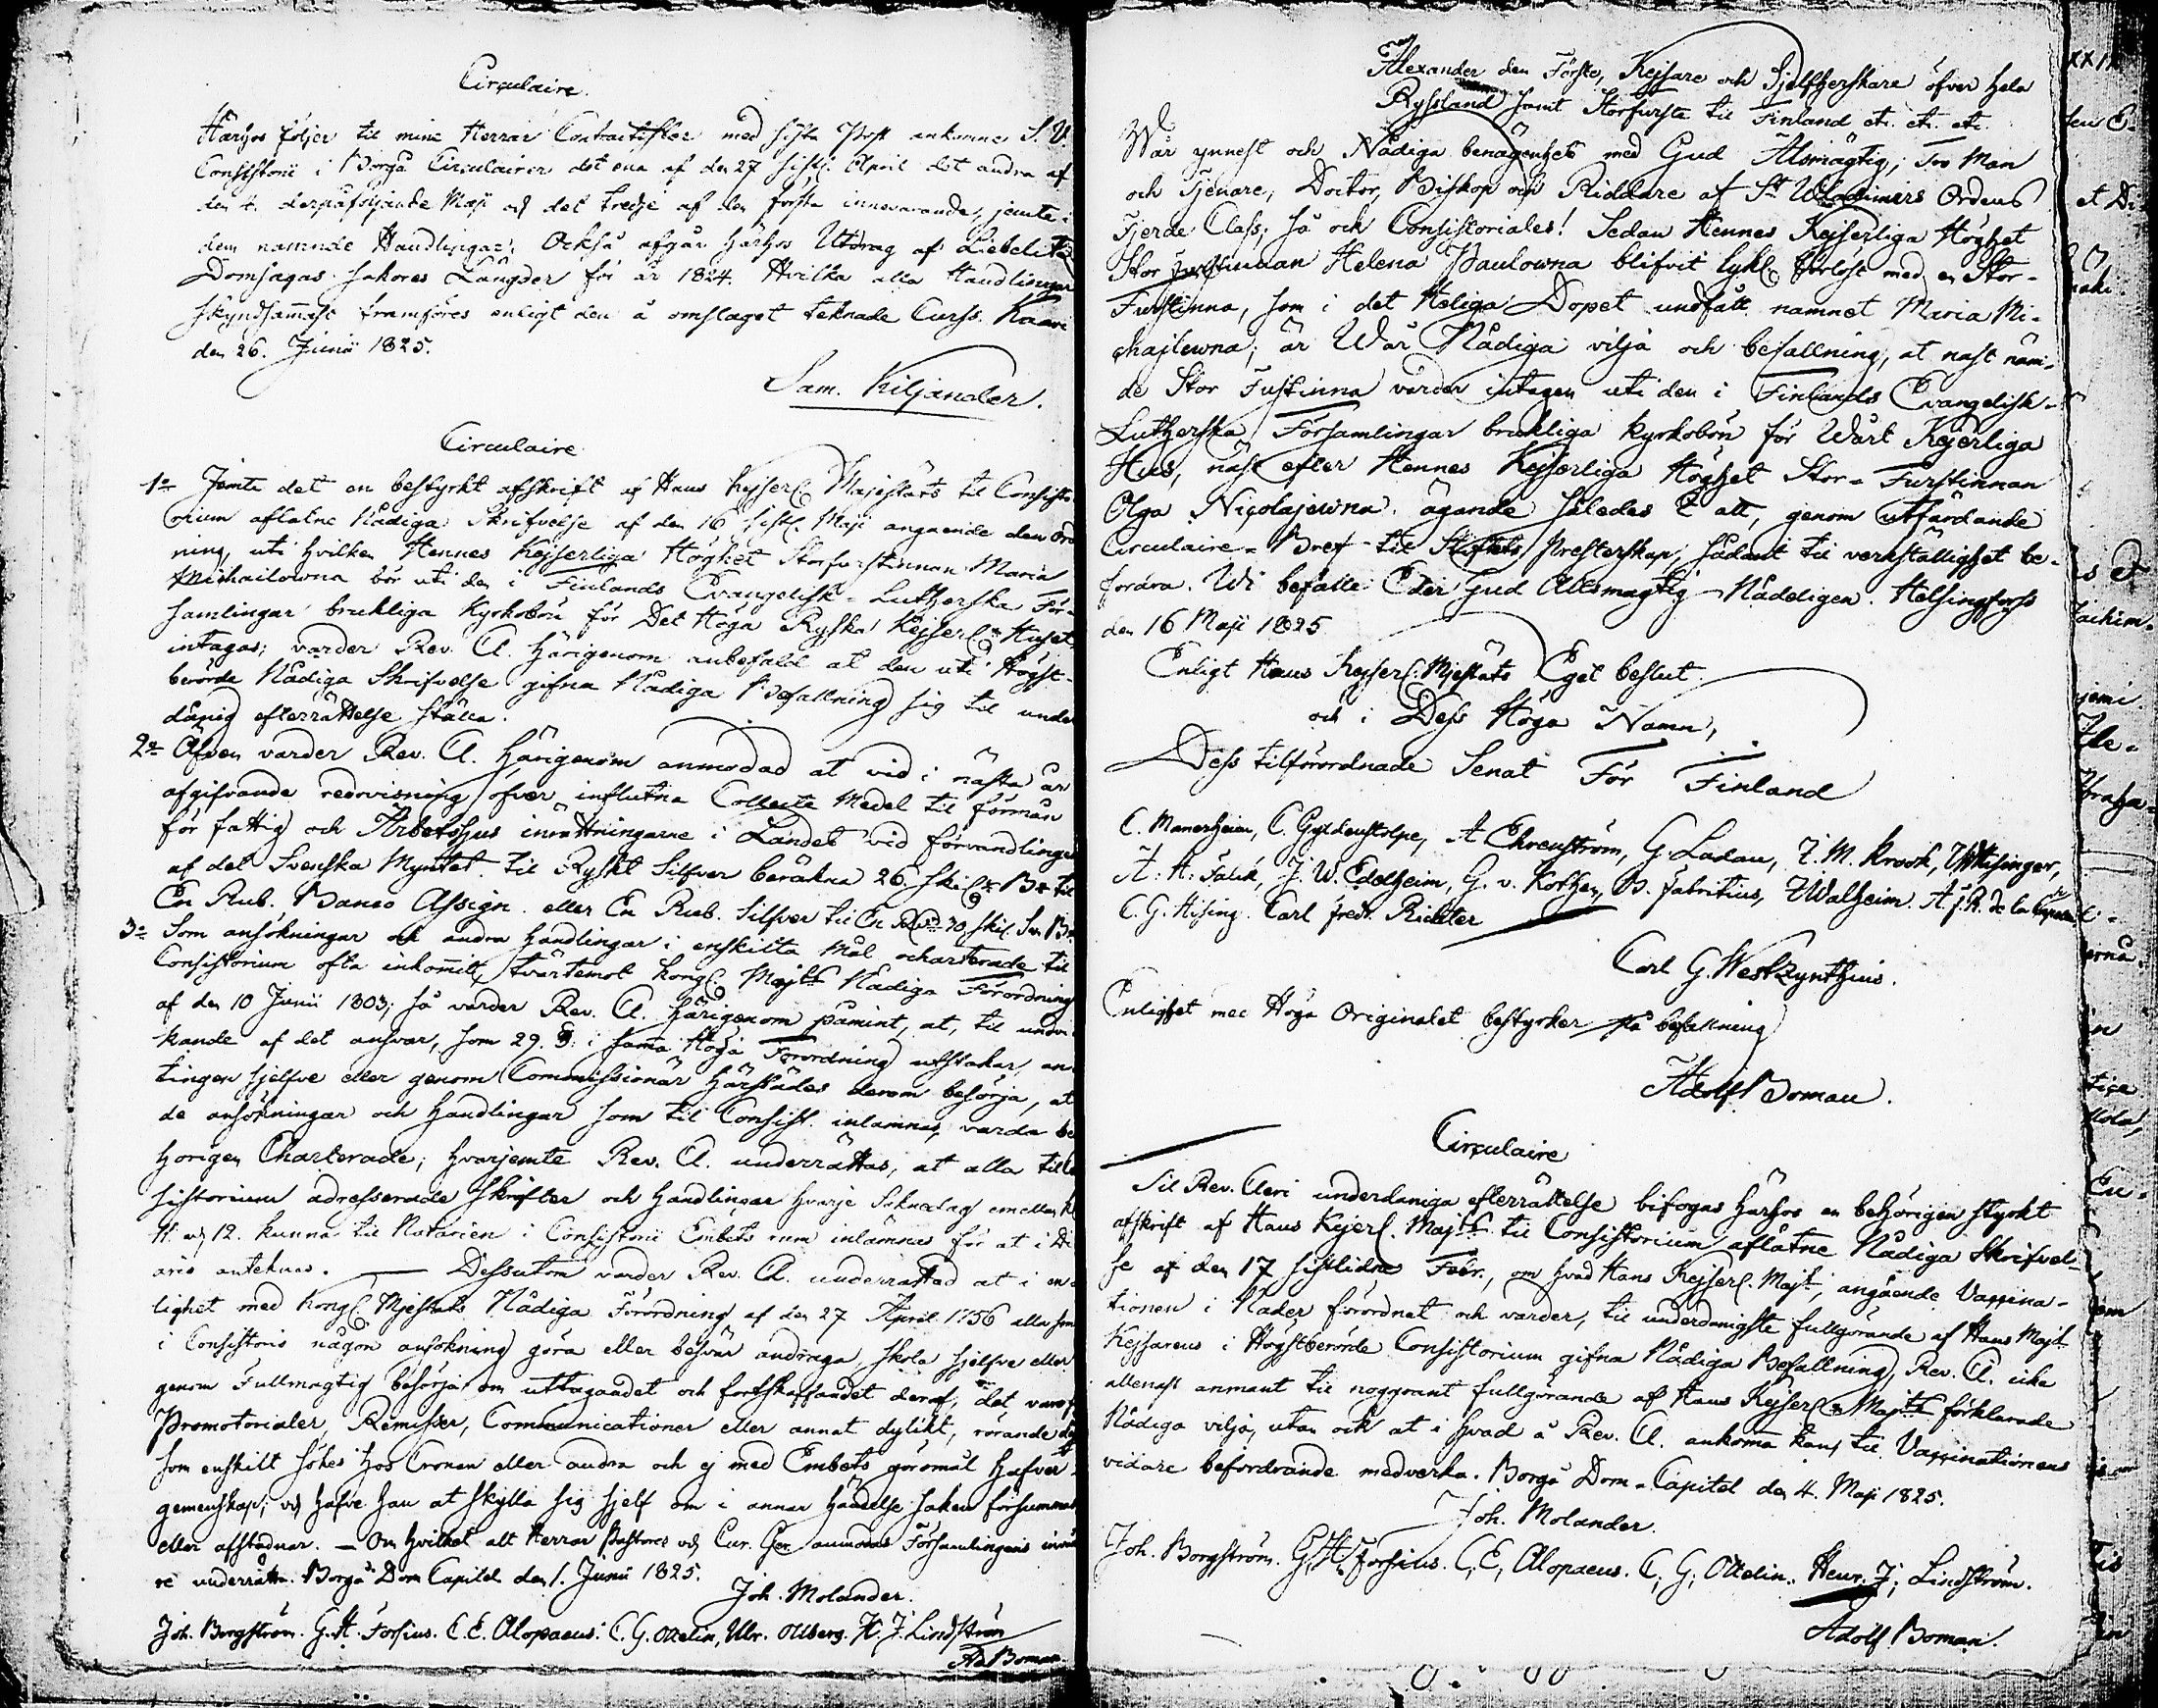 Circulaire
Härhos följer til mine Herrar Contractister med sista Post ankomne S. V.
Consistorii i Borgå Circulairer det ena af den 27 sistl. April det andra af
den 4. derpåföljande Maji och det tredje af den första innevarande, jemte i
dem nämnde Handlingar. Också afgår härhos Utdrag af Liebelitz
Domsagas sakores Längder för år 1824. Hvilka alla Handlingar
skyndsammast framföres enligt den å omslaget teknade Curss. Kaavi
den 26. Junii 1825.
Sam. Kiljander.
Circulaire
1o Jemte det en bestyrkt afskrift af Hans Kejserl. Majestäts til Consist-
orium aflåtne Nådiga Skrifvelse af den 16 sistl. Maji angaende den ord
ning, uti hvilken Hennes Kejserliga Höghet Storfurstinnan Maria
Michailowna bör uti den i Finlands Evangelisk-Lutherska För-
samlingar brukliga Kyrkobön för Det Höga Ryska Kejserl. Huset
intagas; varder Rev. Cl. härigenom anbefald at den uti Högst-
berörde Nådiga Skrifvelse gifna Nådiga Befallning sig til under
dånig efterrättelse ställa.
2o Äfven varder Rev. Cl. härigenom anmodad at vid i nästa år
afgifvande redovisning öfver influtna Collecte Medel til förmån
för fattig och Arbetshus inrättningarne i Landet vid förvandlingen
af det Svenska Myntet til Ryskt Silfver beräkna 26. skil. Bco til
En Rub. Banco Assign. eller En Rub. Silfver til En Rdr 30 skil. Sv. Bco
3o Som ansökningar och andra handlingar i enskilta mål ocharterade til
Consistorium ofta inkommit, tvärtemot Kongl. Majts Nådiga Förordning
af den 10 Junii 1803; så varder Rev. Cl. härigenom påmint, at, til undvi-
kande af det ansvar, som 29. §. i samma Höga Förordning utstakar, an-
tingen sjelfve eller genom Commissionär härstädes derom besörja, at
de ansökningar och handlingar som til Consist. inlämnas, varda be
hörigen Charterade; hvarjemte Rev. Cl. underrättas, at alla til Con
sistorium adresserade skrifter och handlingar hvarje Söknedag emellan kl
11. och 12. kunna til Notarien i Consistorii Embets rum inlämnas för at i Di
ario anteknas. — Dessutom varder Rev. Cl. underrättad at i en-
lighet med Kongl. Mjestäts Nådiga Förordning af den 27 April 1756 alla som
i Consistorio någon ansökning göra eller besvär andraga, skola sjelfve eller
genom Fullmägtig besörja om uttagandet och fortskaffandet deraf, det vare
Promotorialer, Remisser, Communicationer eller annat dylikt, rörande det
som enskilt sökes hos Cronan eller andra och ej med Embets göromål hafver
gemenskap; och hafve han at skylla sig sjelf om i annan händelse saken försummat
eller afstadnar. — Om hvilket alt Herrar Pastores och Cur. Ger. anmodas Församlingens
re underrätta. Borgå Dom Capitel den 1. Junii 1825.
Joh. Molander.
Joh. Borgström. G. H. Forsius. C. E. Alopaeus. C. G. Ottelin, Ulr. Ottberg. H. J. Lindström
Ad. Boman
Alexander den Förste, Kejsare och Sjelfherskare öfver hela
Ryssland samt Storfurste til Finland etc. etc. etc.
Wår ynnest och Nådiga benägenhet med Gud Alsmägtig; Tro Man
och Tjenare, Doctor, Biskop och Riddare af St Wladimirs Ordens
Fjerde Class, så ock Consistoriales! Sedan Hennes Kejserliga Höghet
Stor Furstinnan Helena Paulowna blifvit lykl. förlöst med en Stor-
Furstinna, som i det Heliga Dopet undfått namnet Maria Mi-
chajlewna; är Wår Nådiga vilja och befallning, at nast näm-
de Stor Fustinna varder intagen uti den i Finlands Evangelisk-
Lutherska Församlingar brukliga kyrkobön för Wårt Kejerliga
Hus, näst efter Hennes Kejserliga Höghet Stor-Furstinnan
Olga Nicolajewna. ägande således I att, genom utfärdande
Circulaire-Bref til Stiftets Presterskap, sådant til verkställighet be-
fordra. Wi befalle Eder Gud Allsmägtig Nådeligen. Helsingforss
den 16 Maji 1825
Enligt Hans Kejserl. Mjestäts Eget beslut
och i Dess Höga Namn,
Dess tilförordnade Senat För Finland
C. Manerheim, C. Gyldenstolpe, A Ehrenström, G. Ladau, I. M. Krook, Hisinger,
A: H: Falck, J. W. Edelheim, G. v. Kothen, B. Fabritius, Walheim. A. J. R. de la Chapelle
C. G. Hising. Carl Fredr. Richter
Carl G. Westzynthius.
Enlighet med Höga Originalet bestyrker på befallning
Adolf Boman.
Circulaire
Til Rev. Cleri underdåniga efterrättelse bifogas härhos en behörigen styrkt
afskrift af Hans Kejerl. Majts til Consistorium aflåtne Nådiga Skrifvel-
se af den 17 sistlidne Febr., om hvad Hans Kejserl. Majt, angående Vaccina-
tionen i Nåder förordnat och varder, til underdånigste fullgörande af Hans Majt
Kejsarens i Högstberörde Consistorium gifna Nådiga Befallning, Rev. Cl. icke
allenast anmant til noggrant fullgörande af Hans Kejserl. Majts förklarade
Nådiga vilja, utan ock at i hvad å Rev. Cl. ankomma kan, til Vaccinationens
vidare befordrande medverka. Borgå Dom-Capitel den 4. Maji 1825.
Joh. Molander.
Joh. Borgström. G. H. Forsius. C. E. Alopaeus. C. G. Ottelin. Henr. J. Lindström.
Adolf Boman.